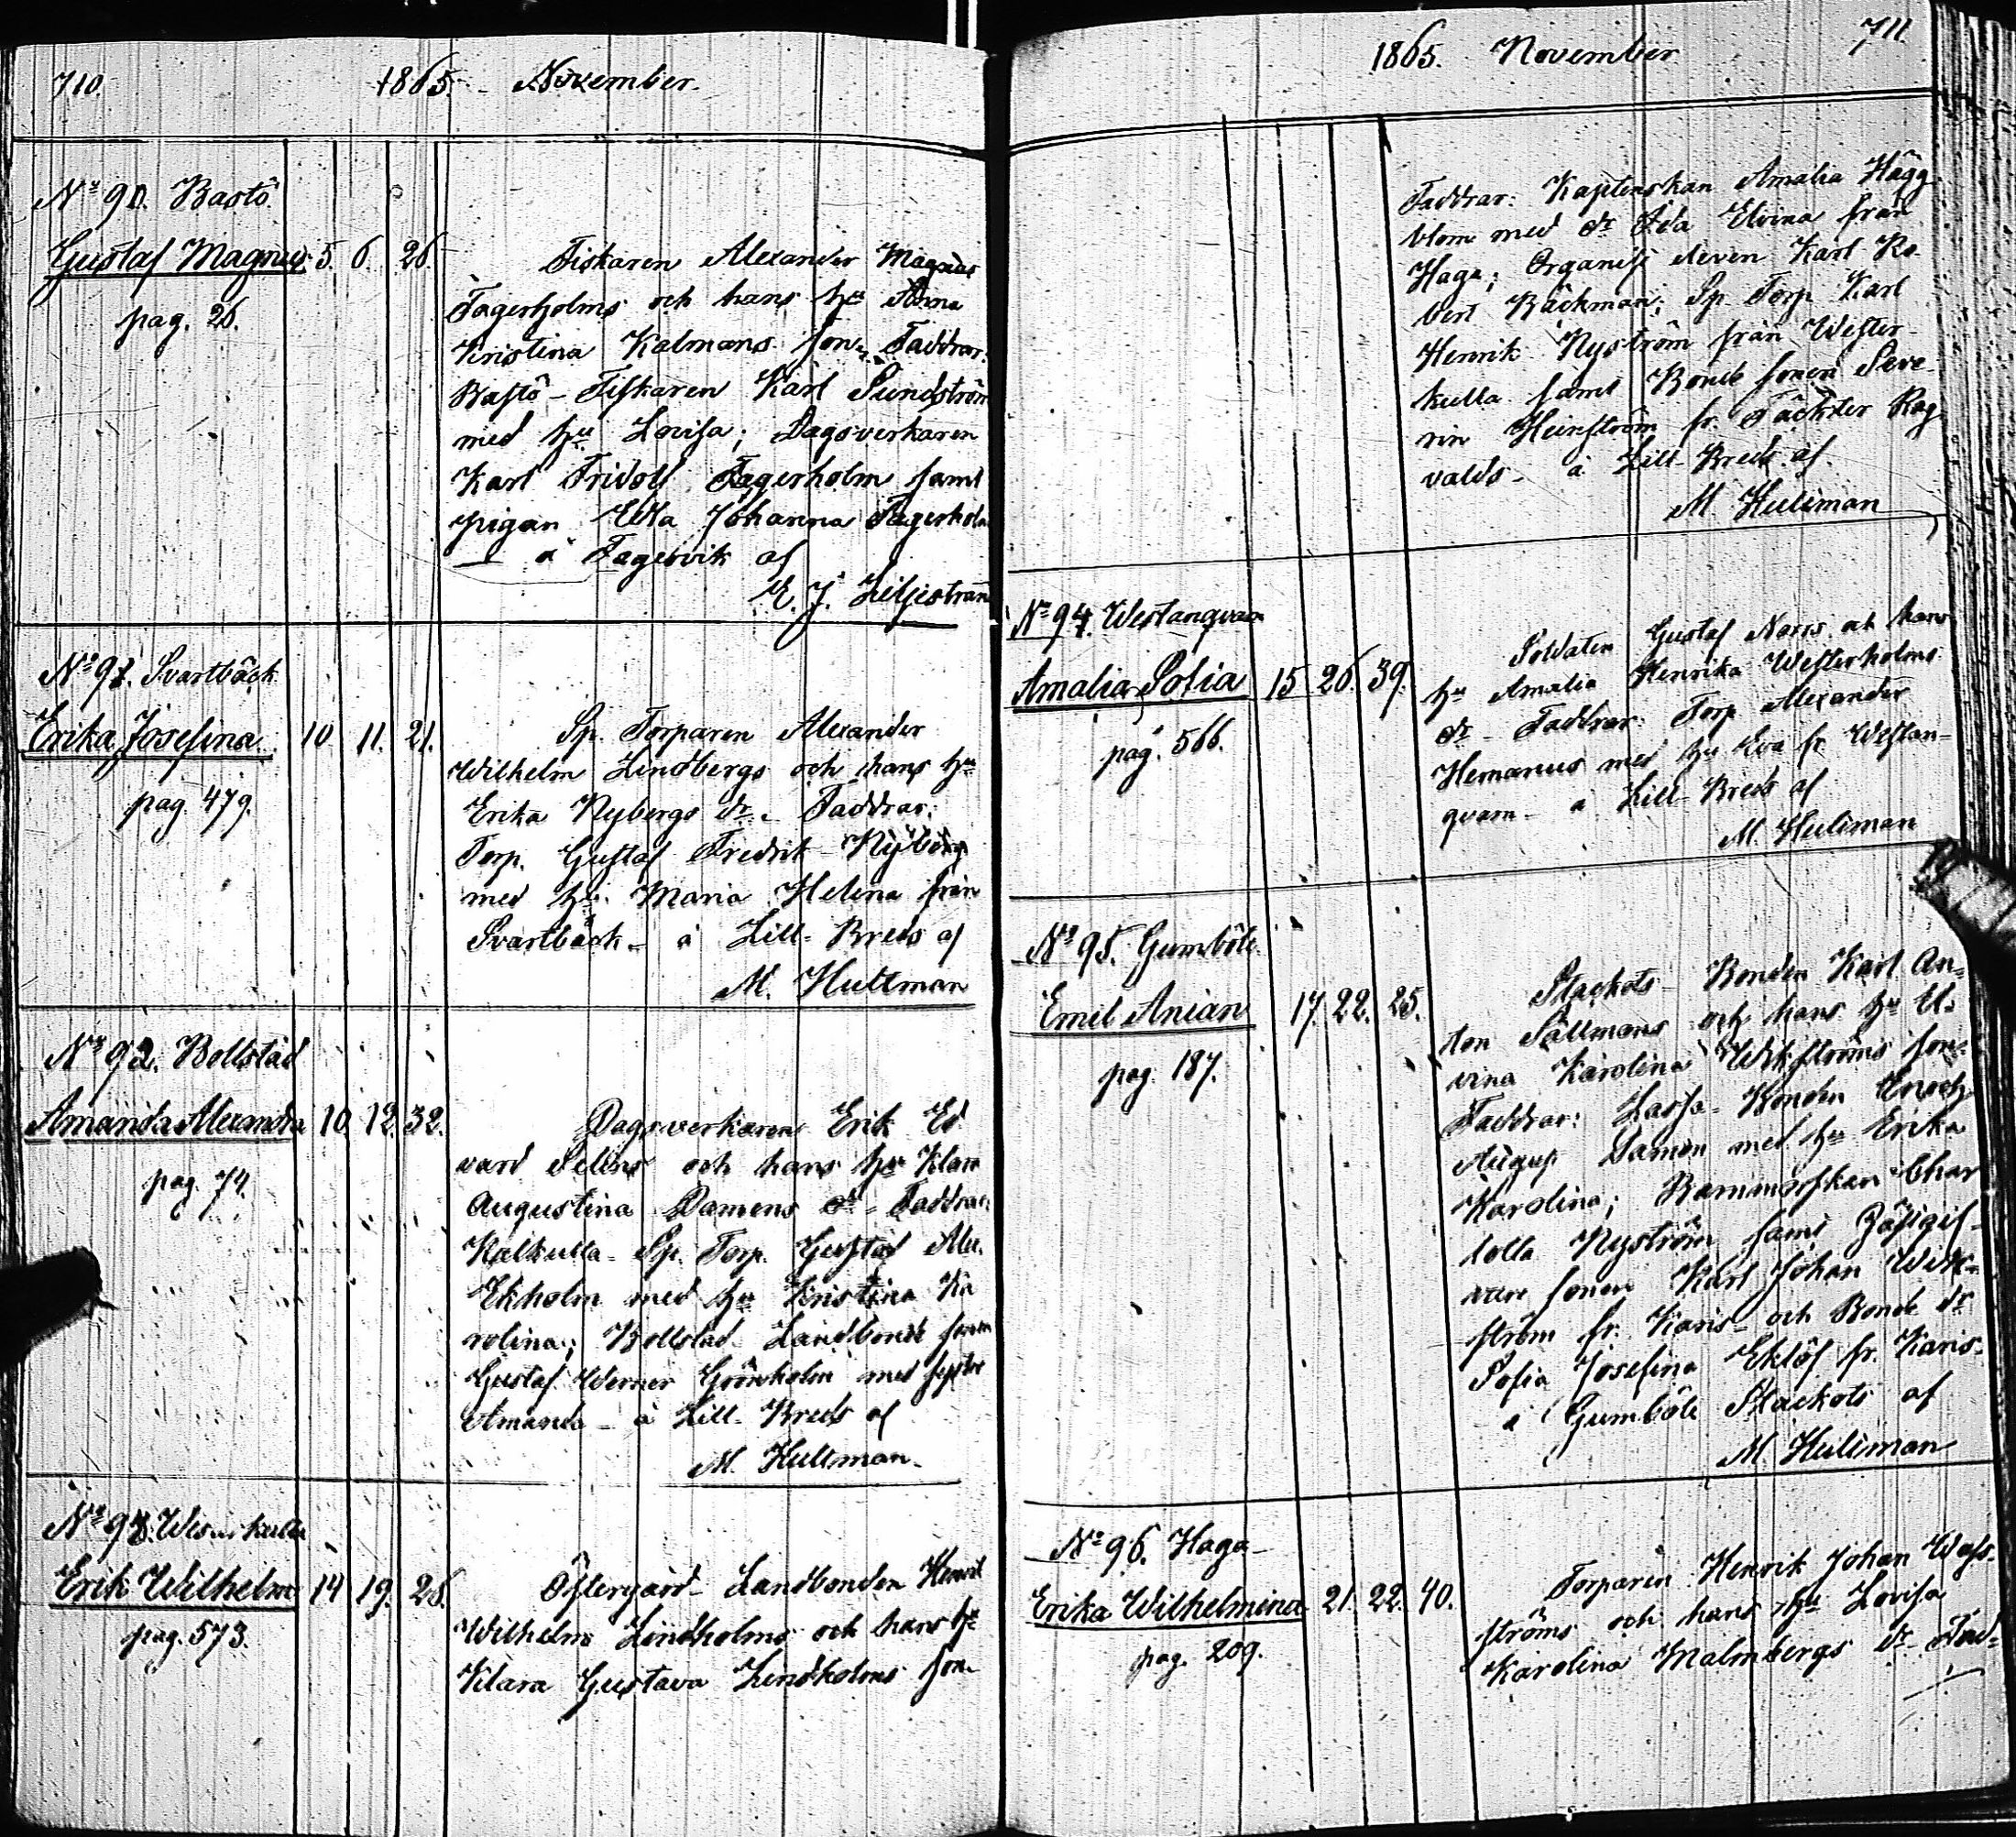 710.
1865. November.
No 90. Bastö
Gustaf Magnus. 5. 6. 26.
pag. 26.
Fiskaren Alexander Magnus
Fagerholms och hans hu Anna
Kristina Kalmans son. Faddrar:
Bastö - Fiskaren Karl Sundström
med hu Lovisa; Dagsverkaren
Karl Fridolf Fagerholm samt
pigan Edla Johanna Fagerholm
— å Fagervik af
E. J. Liljestrand
No 91. Svartbäck
Erika Josefina. 10 11. 21.
pag. 479.
Sp. Torparen Alexander
Wilhelm Lindbergs och hans hu
Erika Nybergs dr. Faddrar:
Torp. Gustaf Fredrik Nyberg
med hu. Maria Helena från
Svartbäck - å Lill-Breds af
M. Hultman
No 92. Bollstad
Amanda Alexandra 10. 12. 32.
pag. 74.
Dagsverkaren Erik Ed
vard Selins och hans hu Klara
Augustina Damens dr - Faddrar:
Kalkulla - Sp. Torp. Gustaf Alex.
Ekholm med hu Kristina Ka
rolina; Bollstad Landbonde sonen
Gustaf Werner Grönholm med syster
Amanda - å Lill-Breds af
M. Hultman.
No 93. Westerkulla
Erik Wilhelm 14 19. 26.
pag. 573.
Östergård - Landbonden Henrik
Wilhelm Lindholms och hans hu
Klara Gustava Lindholms son.
1865. November
711.
Faddrar: Kaptenskan Amalia Hägg
blom med dr Ida Elvina från
Haga; Organist eleven Karl Ro
bert Bäckman; Sp Torp Karl
Henrik Nyström från Wester
kulla samt Bonde sonen Seve
rin Heinström fr. Täckter Rag
valds - å Lill Breds af
M. Hultman
No 94. Westanqvarn
Amalia Sofia 15 26. 39.
pag. 566.
Soldaten Gustaf Norrs och hans
hu Amalia Henrika Westerholms
dr - Faddrar: Torp Alexander
Hemanus med hu Eva fr. Westan-
qvarn - å Lill-Breds af
M. Hultman
No 95. Gumböle
Emil Anian 17. 22. 25.
pag. 187.
Stackots Bonden Karl An-
ton Sällmans och hans hu El-
vina Karolina Wikströms son.
Faddrar: Lassa-Bonden Enoch
August Damen med hu Erika
Karolina; Barnmorskan Char
lotta Nyström samt
vare sonen Karl Johan Wik-
ström fr. Karis - och Bonde dr
Sofia Josefina Eklöf fr. Karis -
å Gumböle Stackots af
M. Hultman
No 96. Haga
Erika Wilhelmina 21. 22. 40.
pag. 209.
Torparen Henrik Johan Wass-
ströms och hans hu Lovisa
Karolina Malmbergs dr - Fad-